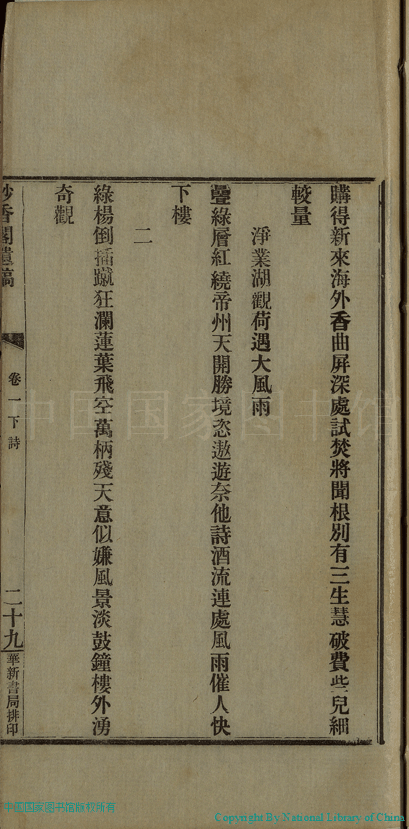 購得新來海外香曲屏深處試焚將聞根別有三生慧破費些兒細
較量
淨業湖觀荷遇大風雨
疊綠層紅繞帝州天開勝境恣遨遊奈他詩酒流連處風雨催人快
下樓
二
綠楊倒插蹴狂瀾蓮葉飛空萬柄殘天意似嫌風景淡鼓鐘樓外湧
奇觀
妙香閣遺稿
卷一下詩
二十九
華新書局排印
中国国家图书馆
中国国家图书馆版权所有
Copyright By National Library of China